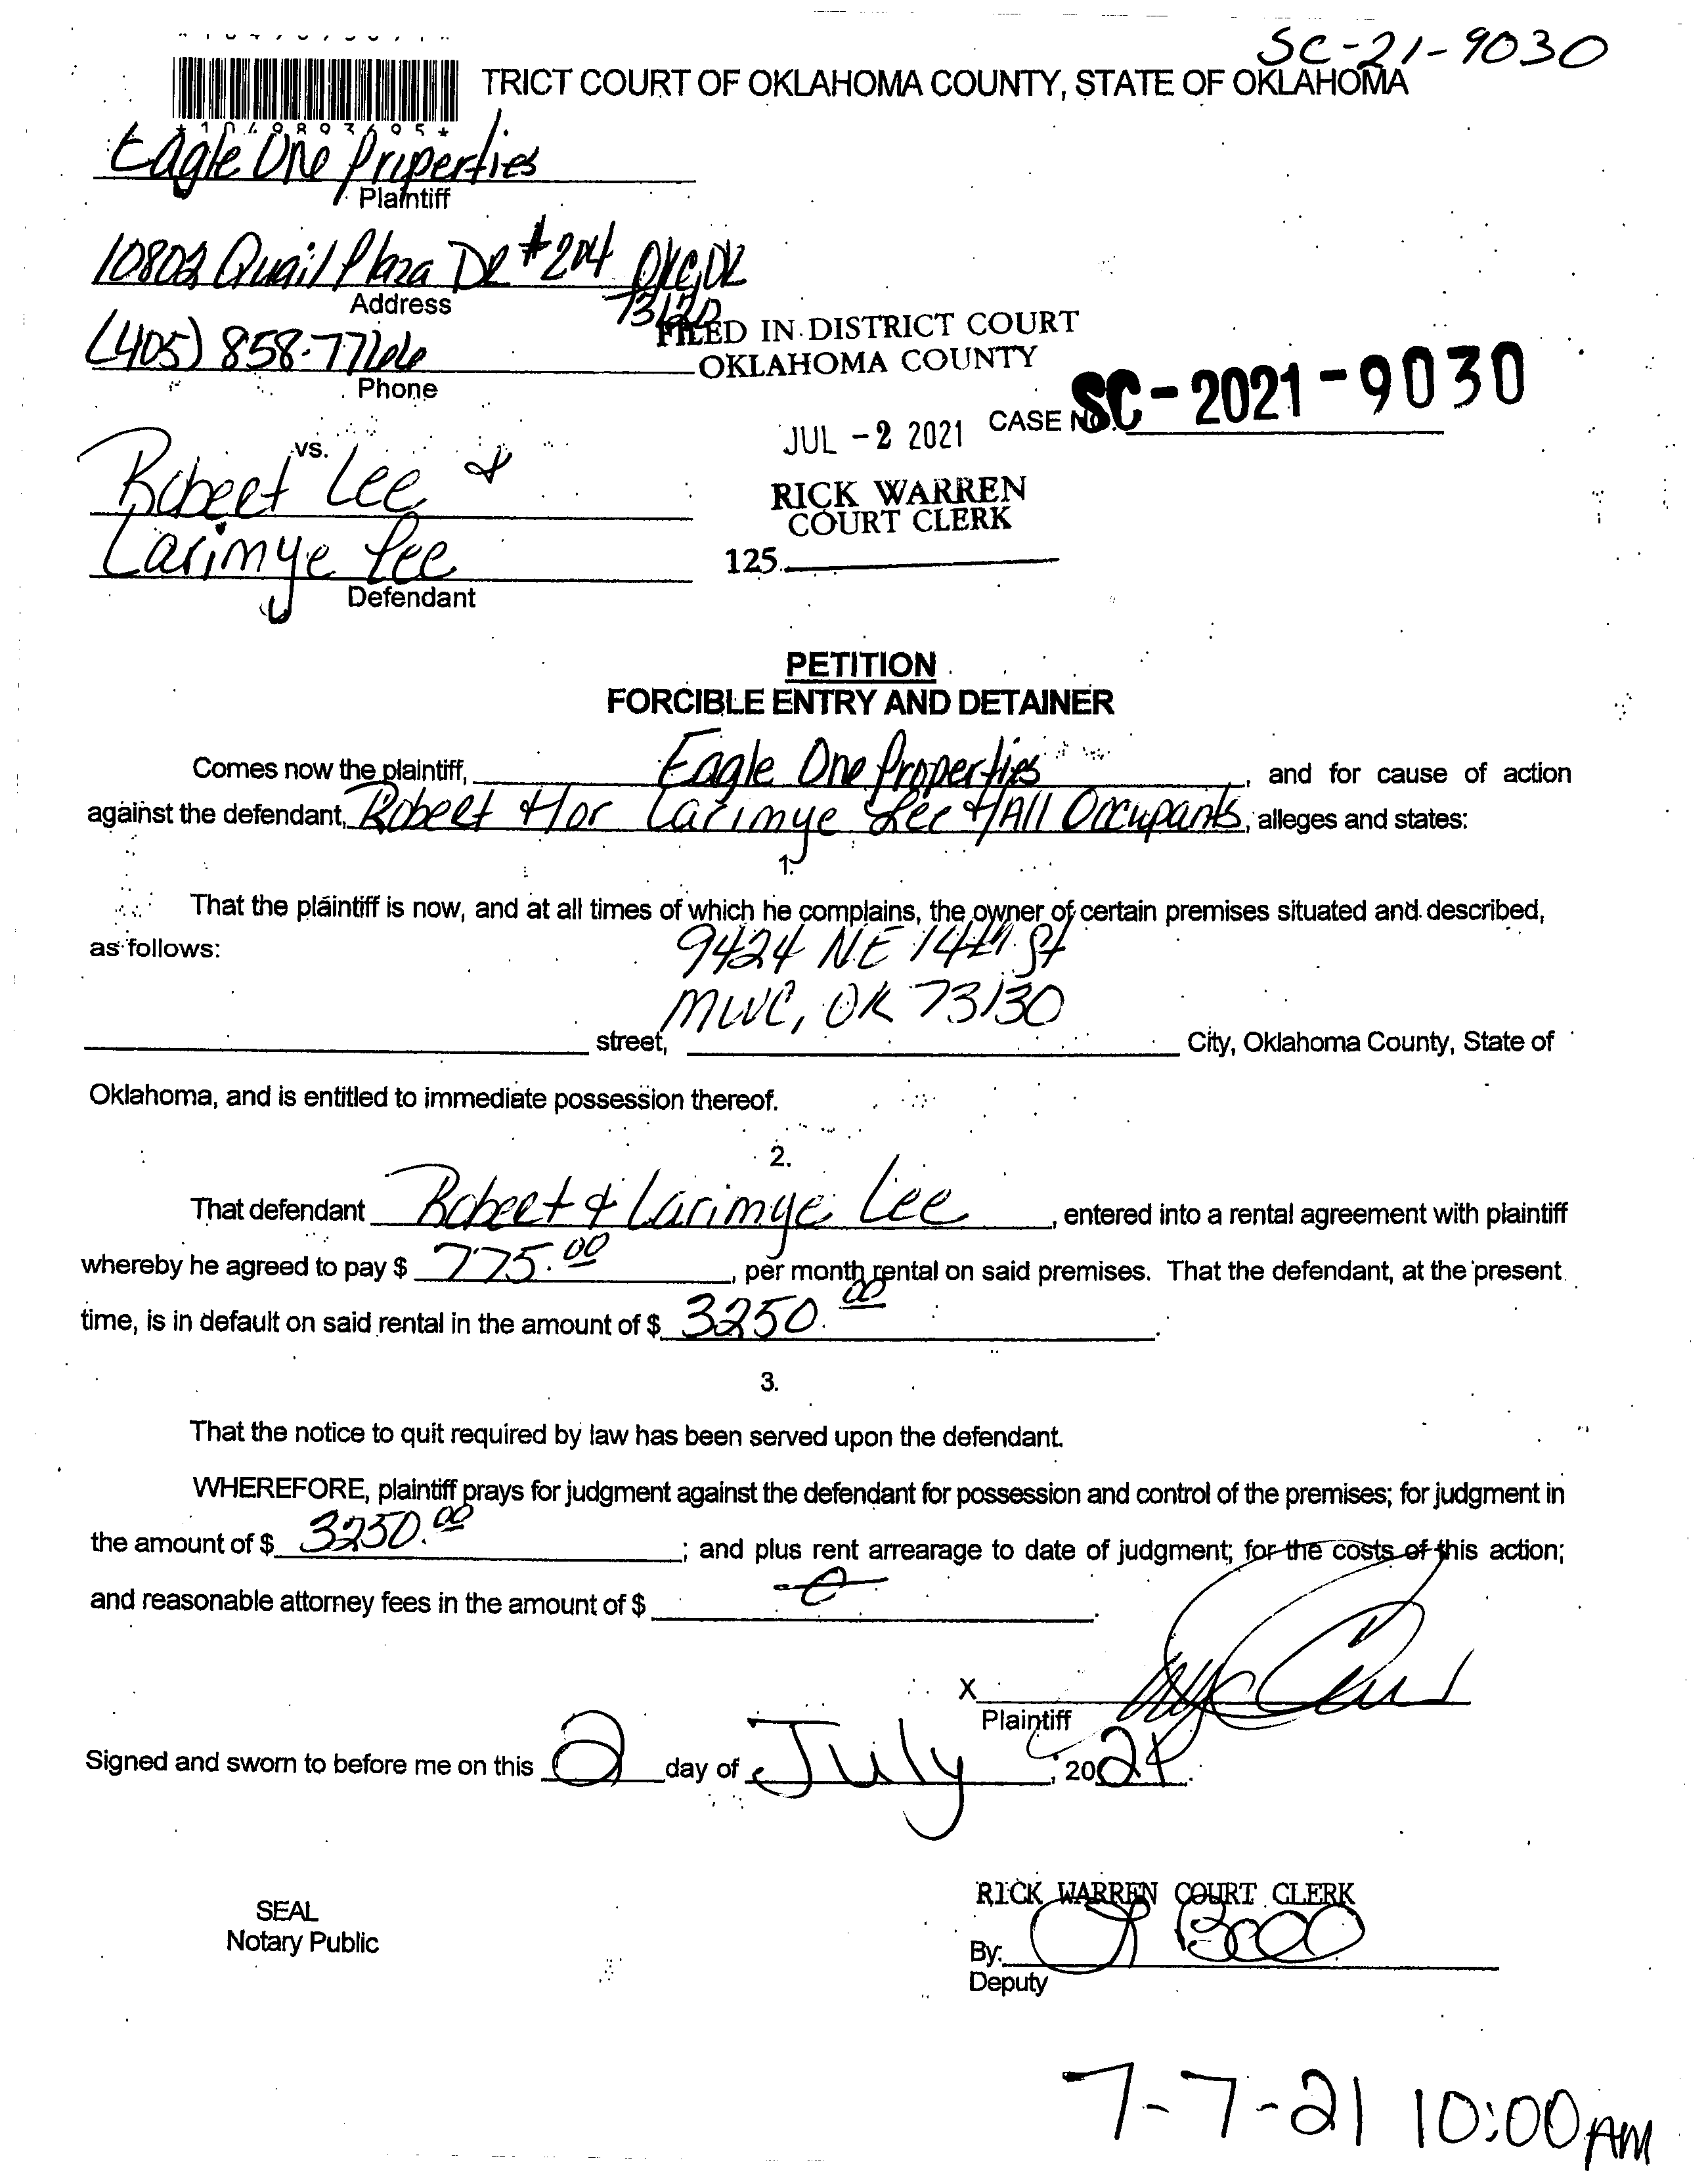 SC-21-9030
TRICT COURT OF OKLAHOMA COUNTY, STATE OF OKLAHOMA
*1049893695*
Eagle One Properties
Plaintiff
10802 Quail Plaza DR #204 OKC, OK
73120
Address
(405) 858-7766
Phone
FILED IN DISTRICT COURT
OKLAHOMA COUNTY
CASE NO. SC-2021-9030
JUL -2 2021
vs.
Robert Lee &
Larimye Lee
Defendant
RICK WARREN
COURT CLERK
125.
PETITION
FORCIBLE ENTRY AND DETAINER
Comes now the plaintiff, Eagle One Properties, and for cause of action
against the defendant, Robert &/or Larimye Lee &/All Occupants, alleges and states:
1.
That the plaintiff is now, and at all times of which he complains, the owner of certain premises situated and described,
as follows: 9424 NE 14th St
MWC, OK 73130
street, City, Oklahoma County, State of
Oklahoma, and is entitled to immediate possession thereof.
2.
That defendant Robert & Larimye Lee, entered into a rental agreement with plaintiff
whereby he agreed to pay $ 775.00, per month rental on said premises. That the defendant, at the present
time, is in default on said rental in the amount of $ 3250.00.
3.
That the notice to quit required by law has been served upon the defendant.
WHEREFORE, plaintiff prays for judgment against the defendant for possession and control of the premises; for judgment in
the amount of $ 3250.00; and plus rent arrearage to date of judgment; for the costs of this action;
and reasonable attorney fees in the amount of $ .
X
Plaintiff
Signed and sworn to before me on this 2 day of July, 2021.
SEAL
Notary Public
RICK WARREN COURT CLERK
By:
Deputy
7-7-21 10:00 AM